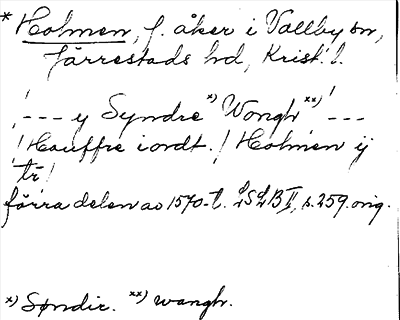 * Holmen, f. åker i Vallby sn,
Järrestads hd, Krist. l.
! --- y Syndre *) Wongh **) ! ---
! Hauffre iordt. ! Holmen ij
tr !
förra delen av 1570-t. LSLB II, s. 259. orig.
*) Søndre. **) wangh.